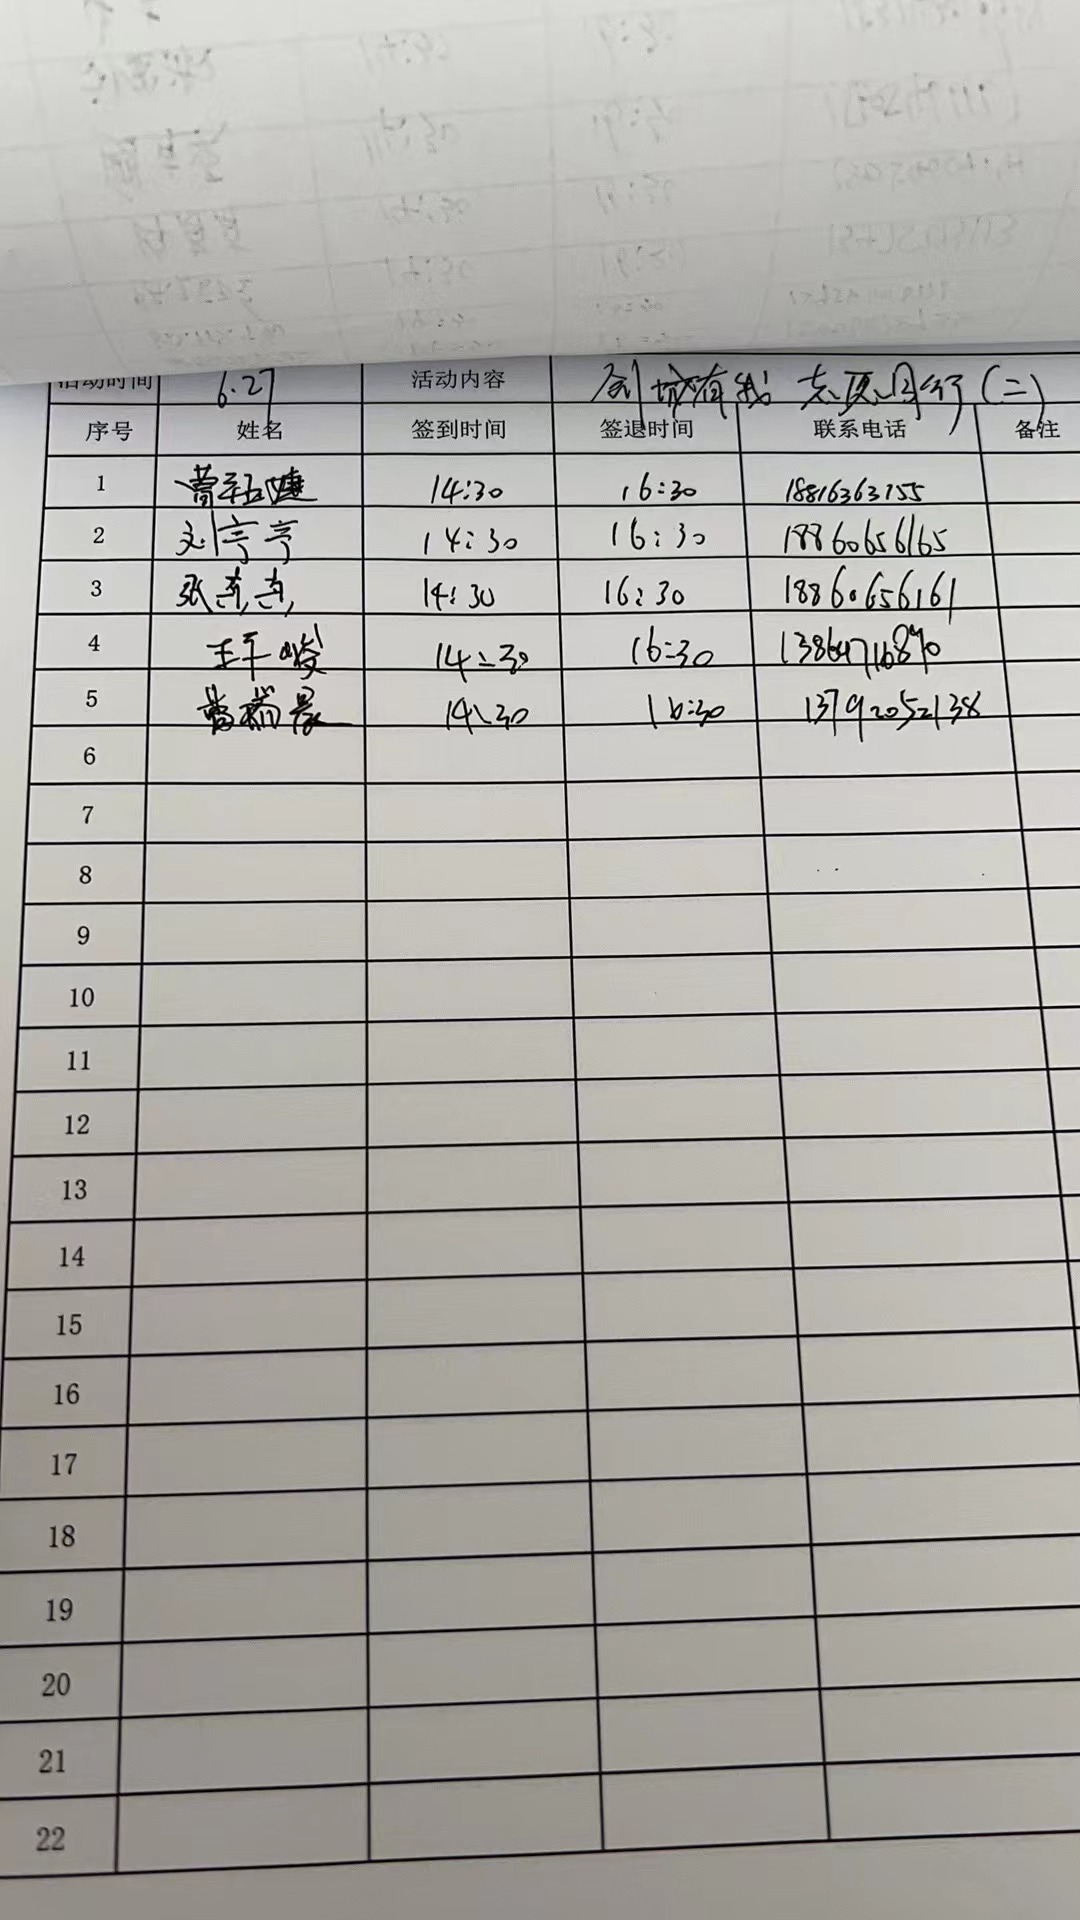 活动时间 6.27 活动内容 创城有我 志愿同行(二)
序号 姓名 签到时间 签退时间 联系电话 备注
1 14:30 16:30 18816363155
2 刘亭亭 14:30 16:30 18860656165
3 张燕燕 14:30 16:30 18860656161
4 14:30 16:30
5 曹瑞晨 14:30 16:30 13792052138
6
7
8
9
10
11
12
13
14
15
16
17
18
19
20
21
22